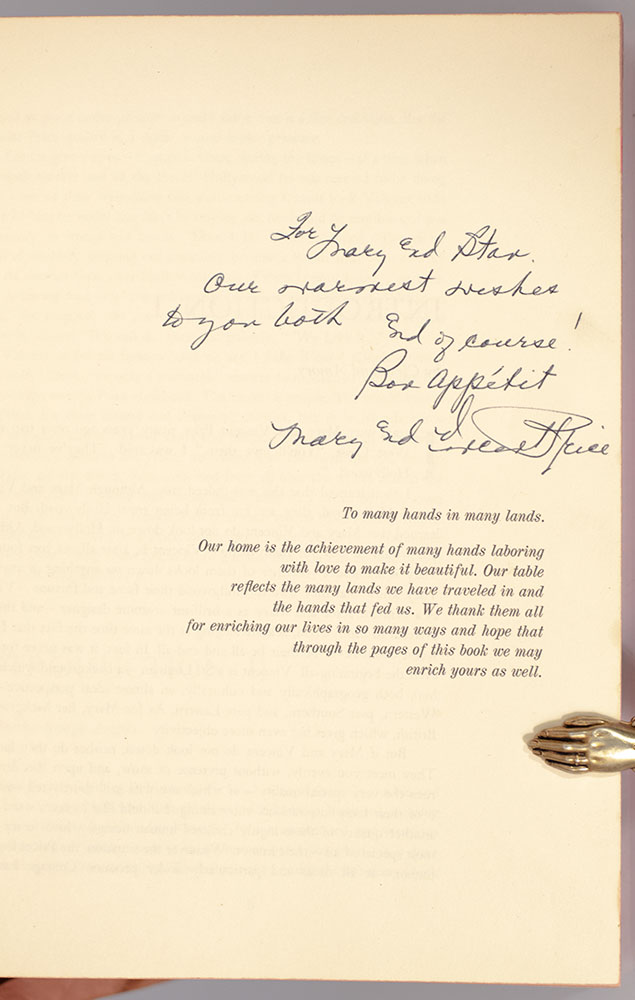 For Mary And Stan.
Our warmest wishes
to you both And of course!
Bon Appétit
Mary And Vincent Price
To many hands in many lands.
Our home is the achievement of many hands laboring
with love to make it beautiful. Our table
reflects the many lands we have traveled in and
the hands that fed us. We thank them all
for enriching our lives in so many ways and hope that
through the pages of this book we may
enrich yours as well.